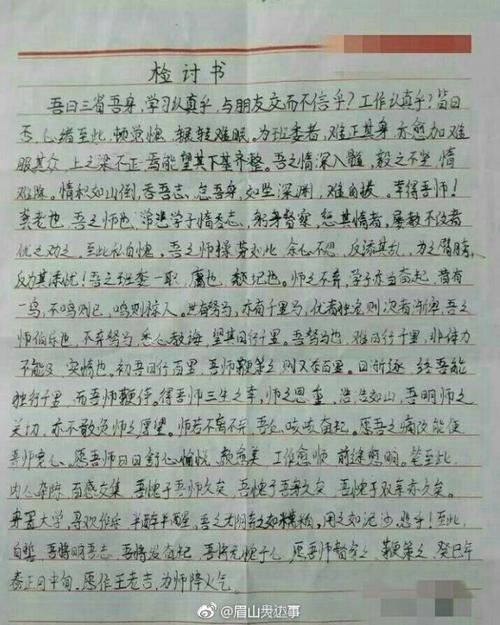 检讨书
吾日三省吾身,学习认真乎,与朋友交而不信乎?工作认真乎?皆曰
否,心绪至此,惭觉愧,辗转难眠,为班委者,难正其身,亦愈加难
服其众,上之梁不正,焉能望其下基齐整。吾之惰深入髓,毅之不坚,情
难除。惰积如山倒,吞吾志,怠吾身,如坠深渊,难自拔。幸得吾师!
龚老也,吾之师也,常悲学子惰吞志,躬身督察,怒其惰者,屡教不改者
优之劝之,至此私自愧,吾之师操劳如此,余心不思,反添其乱,为之胃肺,
反为其添优!吾之班委一职,庸也,颓圮也。师之不弃,学子亦当奋起,昔有
一鸟,不鸣则已,鸣则惊人。世有驽马,亦有千里马,优者独宠,则次者渐堕,吾之
师伯乐也,不弃驽马,悉心教诲,望其日行千里。吾驽马也,难日行千里,非体力
不能及,实惰也。初吾日行百里,吾师鞭策之,则又存百里。日渐逐,终吾能
独行千里,而吾师鞭伴。得吾师三生之幸,师之恩重,浩浩如山,吾明师之
关切,亦不敢负师之厚望。师若不离不弃,吾必咬咬奋起。愿吾之痛改能使
吾师宽心,愿吾师日日舒心愉悦,教完美,工作愈顺,前途愈明。笔至此,
内心杂陈,百感交集,吾愧于吾师久矣,吾愧于吾身久矣,吾愧于双亲亦久矣。
弃置大学,寻欢作乐,半醉半醒,吾之大好青春如模糊,用之如泥沙,悲乎!至此,
自誓,吾将明吾志,吾将发奋起,吾将无愧于心,愿吾师督察之,鞭策之,癸巳年
春正月中旬,愿作王老吉,为师降火气。
@眉山男边事